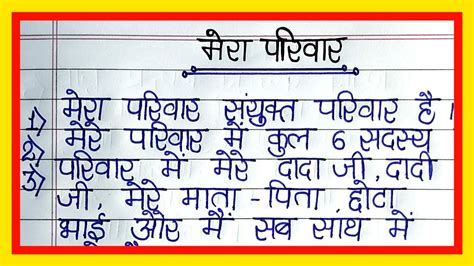 मेरा परिवार
1) मेरा परिवार संयुक्त परिवार है ।
2) मेरे परिवार में कुल 6 सदस्य
3) परिवार में मेरे दादा जी , दादी
जी , मेरे माता - पिता छोटा
भाई और मैं सब साथ में